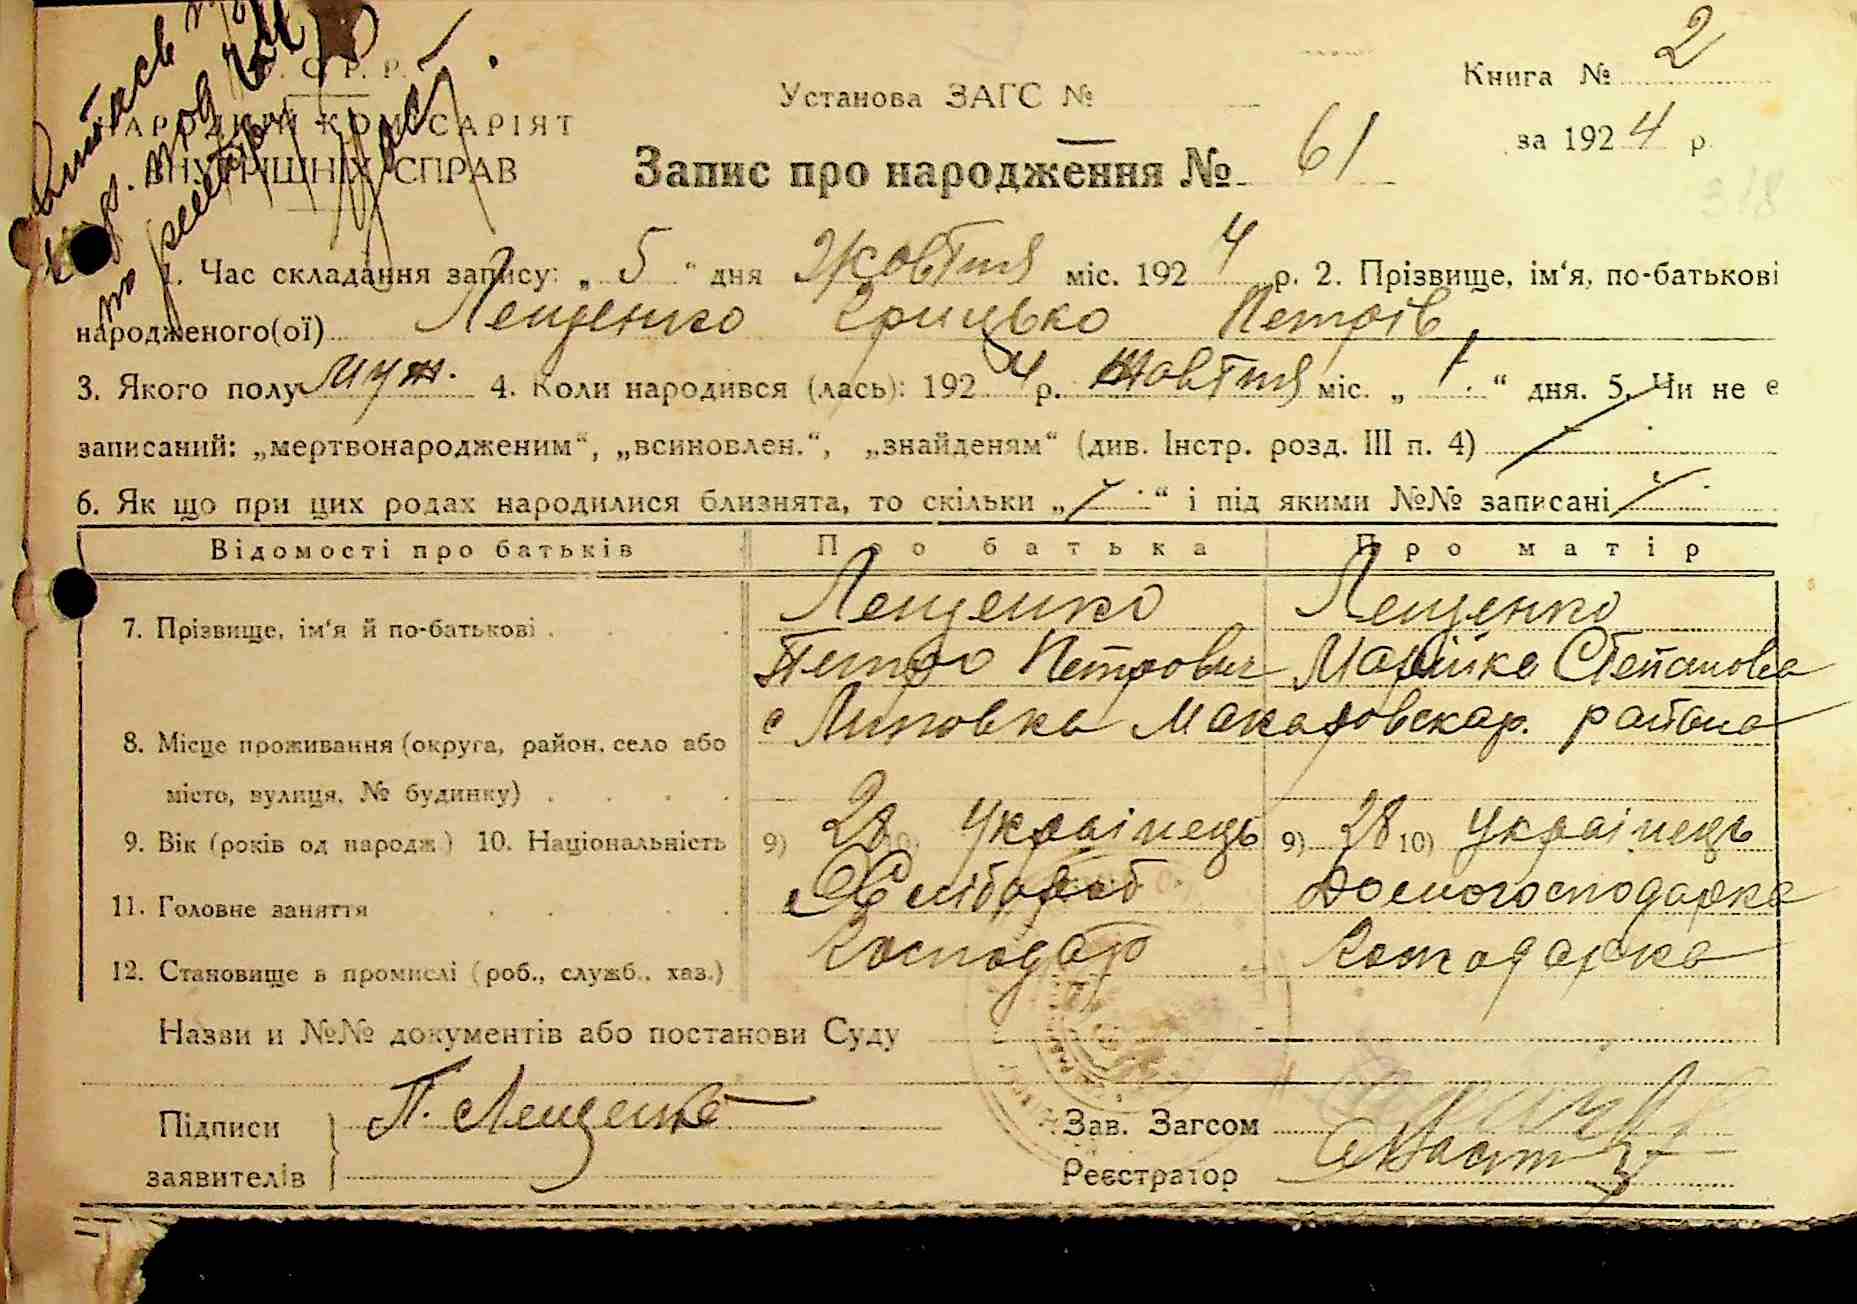 Книга № 2
Установа ЗАГС №
за 1924 р.
НАРОДНИЙ КОМІСАРІЯТ
ВНУТРІШНІХ СПРАВ
Запис про народження № 61
318
1. Час складання запису: „ 5 “ дня Жовтня міс. 1924 р. 2. Прізвище, ім‘я, по-батькові
народженого(ої) Лещенко Грицько Петрів
3. Якого полу муж. 4. Коли народився (лась): 1924 р. жовтня міс. „ 1 “ дня. 5. Чи не є
записаний: „мертвонародженим“, „всиновлен.“, „знайденям“ (див. Інстр. розд. III п. 4)
6. Як що при цих родах народилися близнята, то скільки „ “ і під якими №№ записані
Відомості про батьків Про батька Про матір
7. Прізвище, ім‘я й по-батькові Лещенко Лещенко
Петро Петрович Марійка Степанова
8. Місце проживання (округа, район, село або с Липовка Макаровскар. района
місто, вулиця, № будинку)
9. Вік (років од народж.) 10. Національність 9) 28 10) Українець 9) 28 10) Українець
11. Головне заняття Хлібороб Домогосподарка
12. Становище в промислі (роб., служб., хаз.) Господар Господарка
Назви и №№ документів або постанови Суду
Підписи П. Лещенко Зав. Загсом
заявителів Реєстратор